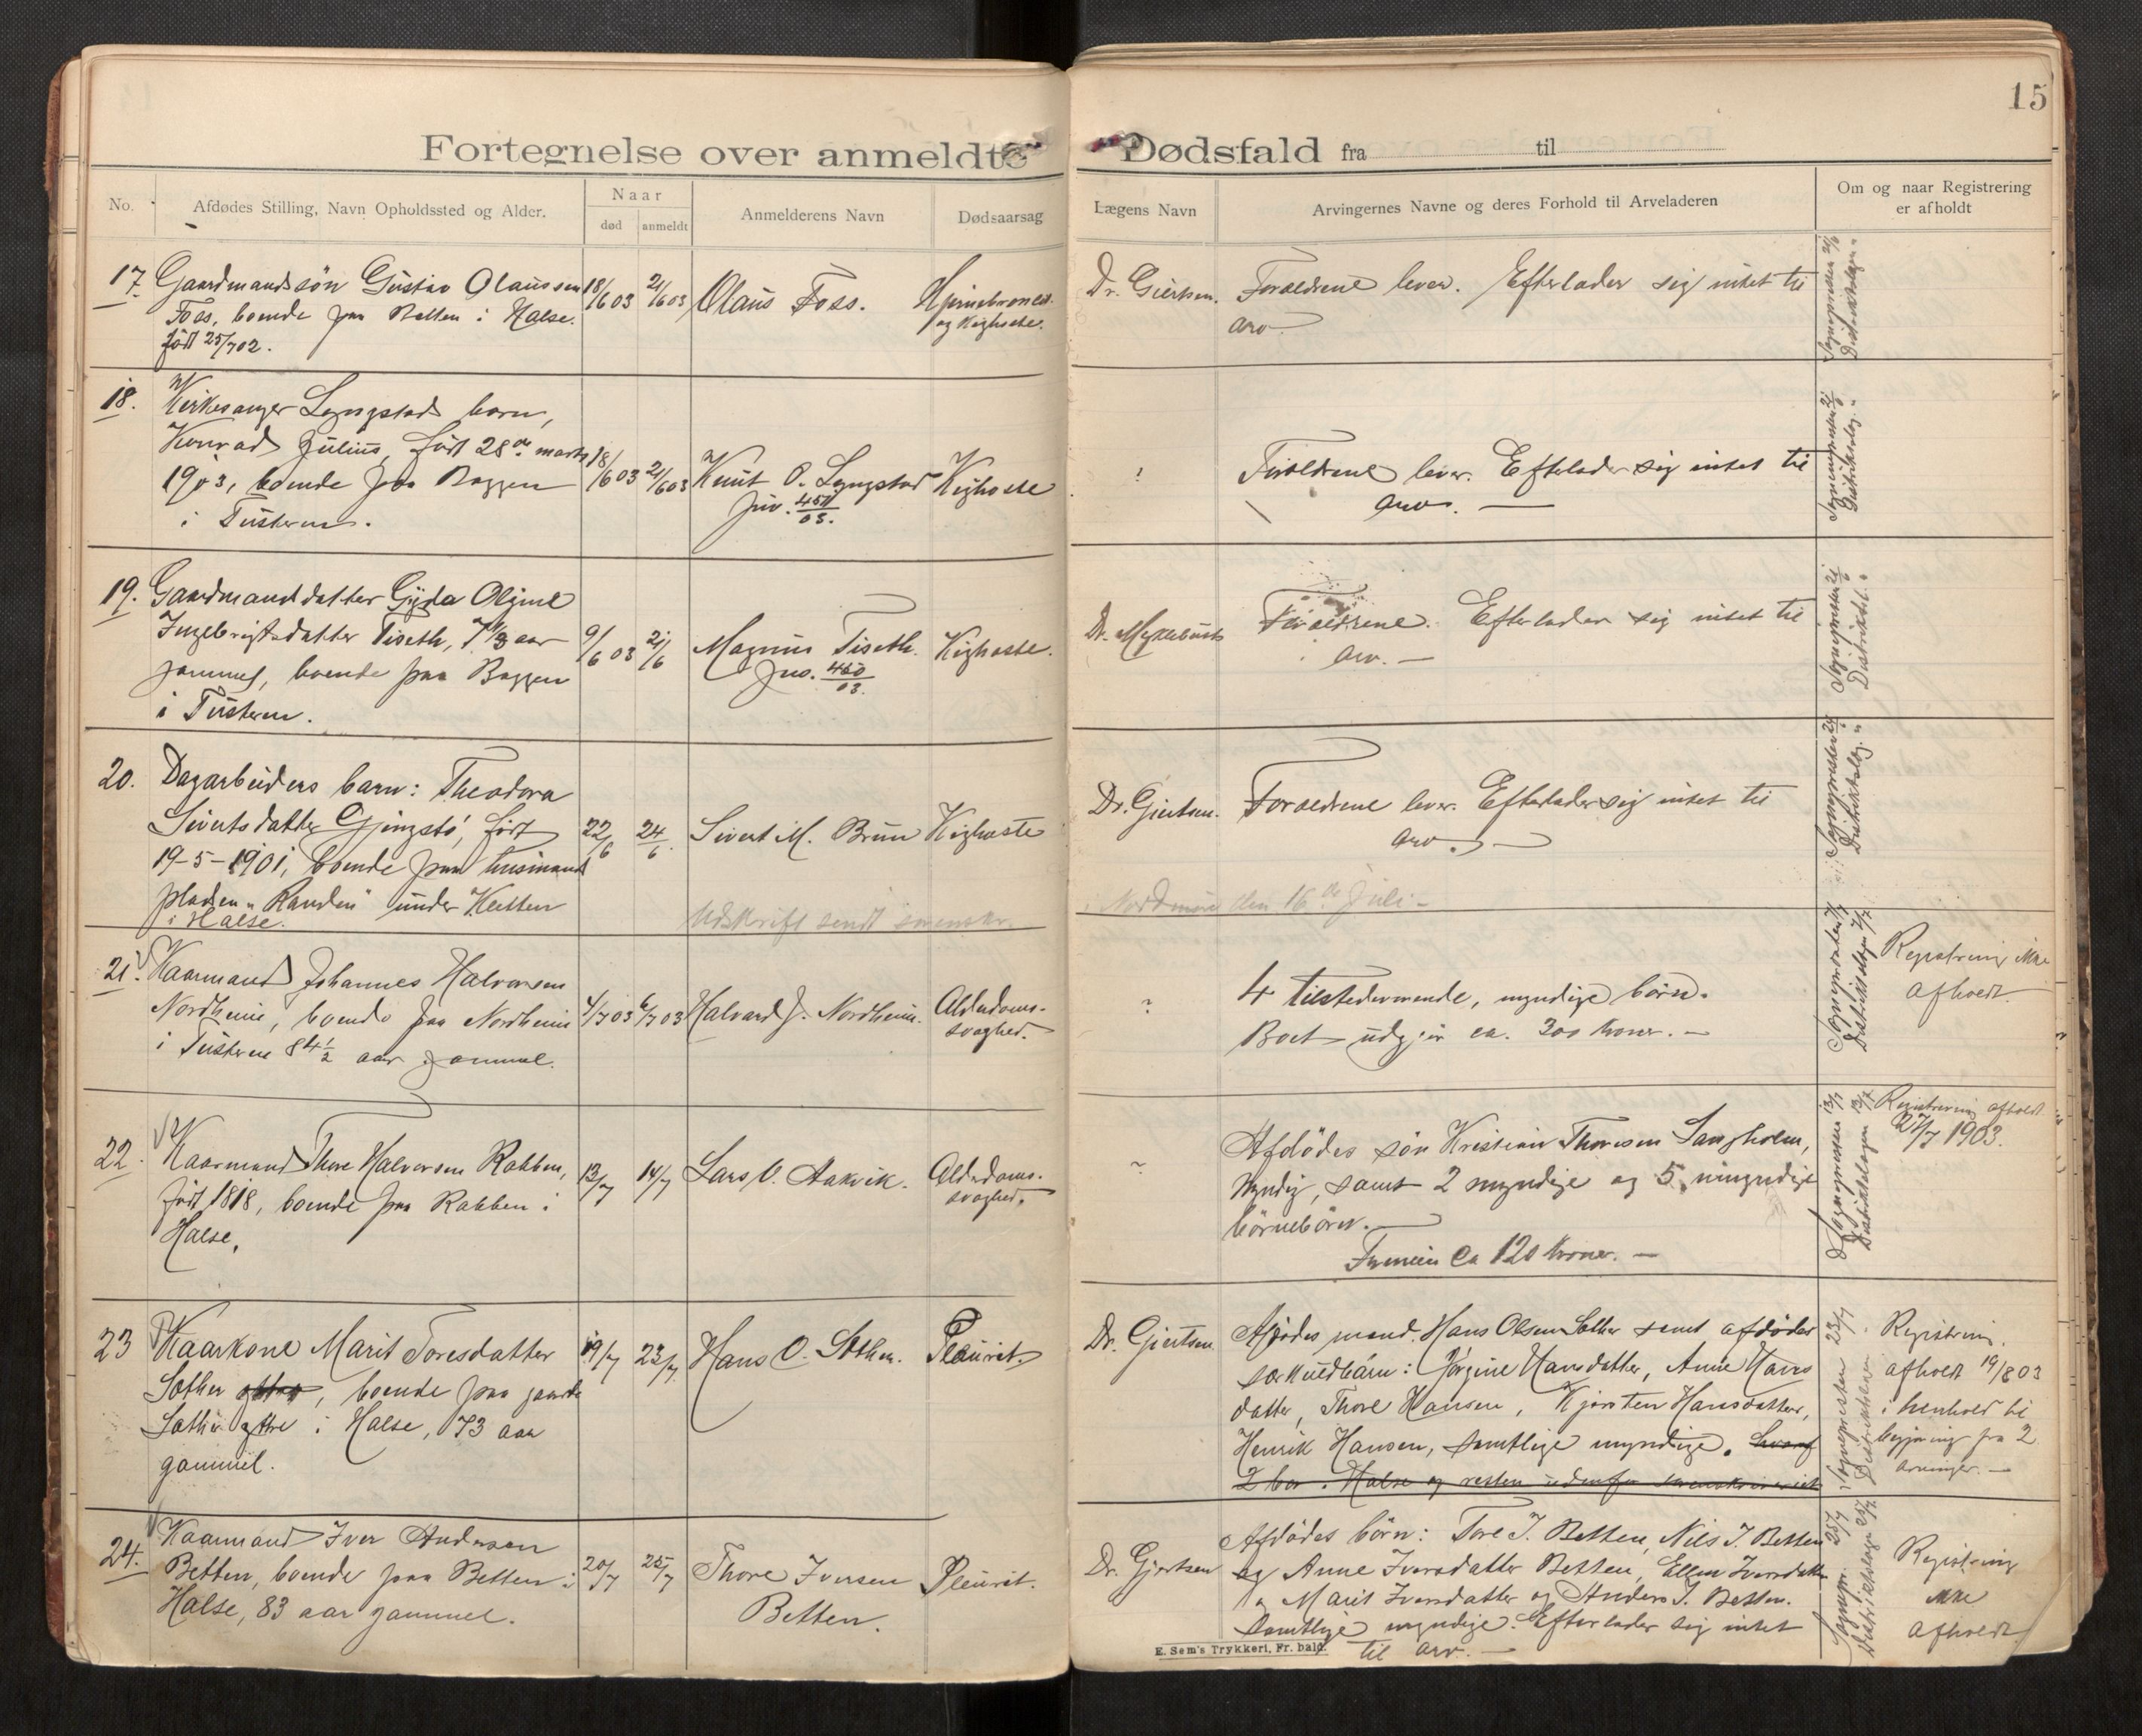 15
Fortegnelse over anmeldte Dødsfald fra til
No.
Afdødes Stilling, Navn Opholdssted og Alder.
Naar
død
anmeldt
Anmelderens Navn
Dødsaarsag
Lægens Navn
Arvingernes Navne og deres Forhold til Arveladeren
Om og naar Registrering
er afholdt
17.
Gaardmandssön Gustav Olaussen
Foss, boende paa Betten i Halse.
född 25/7 02.
18/6 03
21/6 03
Olaus Foss.
og Kighoste.
Dr. Giertsen.
Foraeldrene lever. Efterlader sig intet til
arv
Sognepresten 21/6
Distriktslægen "
18.
Kirkesanger Lyngstads barn,
Konrad Julius, född 28de marts
1903, boende paa
i Tusteren.
18/6 03
21/6 03
Knut O. Lyngstad
Jnr. 451/03.
Kighoste
?
Foraeldrene lever. Efterlader sig intet til
arv. —
Sognepresten 21/6
Distriktslæg. "
19.
Gaardmandsdatter Gyda Oline
Ingebrigtsdatter Tiseth, 7 1/3 aar
gammel, boende paa
i Tusteren.
9/6 03
21/6
Magnus Tiseth.
Jno. 450/03.
Kighoste.
Dr. Myklebust
Foraeldrene. Efterlader sig intet til
arv. —
Sognepresten 21/6
Distriktsl. "
20.
Dagarbeiders barn: Theodora
Sivertsdatter född
19-5-1901, boende paa husmands
pladsen "Randen" under
i Halse.
22/6
24/6
Sivert M. Brun
Kighoste
Dr. Giertsen.
Foraeldrene lever. Efterlader sig intet til
arv. —
Sognepresten 24/6
Distriktslæg. "
Udskrift sendt sorenskr. i Nordmøre den 16de Juli —
21.
Kaarmand Johannes Halvorsen
Nordheim, boende paa Nordheim
i Tusteren 84 1/2 aar gammel.
4/7 03
6/7 03
Halvard J. Nordheim.
Alderdoms-
svaghed.
?
4 tilstedeværende, myndige börn.
Boet udgjør ca. 300 kroner. —
Sognepresten 7/7
Distriktslægen 7/7
Registrering ikke
afholdt.
22.
Kaarmand Thore Halvorsen Rabben,
född 1818, boende paa Rabben i
Halse.
13/7
14/7
Lars O. Aakvik.
Alderdoms-
svaghed.
?
Afdödes sön Kristian Thoresen Sangholm,
myndig, samt 2 myndige og 5 umyndige
börnebörn. —
Formuen ca 120 kroner. —
Sognepresten 13/7
Distriktslægen 13/7
Registrering afholdt
27/7 1903.
23
Kaarkone Marit Toresdatter
Sæther, boende paa gaarden
Sæther yttre i Halse, 73 aar
gammel.
19/7
23/7
Hans O. Sæther.
Pleurit.
Dr. Gjertsen
Afdödes mand, Hans Olsen Sæther samt afdödes
særkuldbarn: Jørgine Hansdatter, Anne Hans
datter, Thore Hansen, Kjersten Hansdatter,
Henrik Hansen, samtlige myndige. hvoraf
2 bor i Halse og resten udenfor sorenskriveriet
Sognepresten 23/7
Distriktslægen
Registrering
afholdt 19/8 03
i henhold til
begjæring fra 2
arvinger. —
24.
Kaarmand Iver Andersen
Betten, boende paa Betten i
Halse, 83 aar gammel.
20/7
25/7
Thore Iversen
Betten.
Pleurit.
Dr. Gjertsen
Afdödes börn: Tore I. Betten, Nils I. Betten
og Anne Iversdatter Betten, Ellen Iversdatter
og Marit Iversdatter og Anders I. Betten.
Samtlige myndige. Efterlader sig intet
til arv. —
Sognepr. 25/7
Distriktslægen 25/7
Registrering
ikke
afholdt
E. Sem's Trykkeri, Fr. hald.